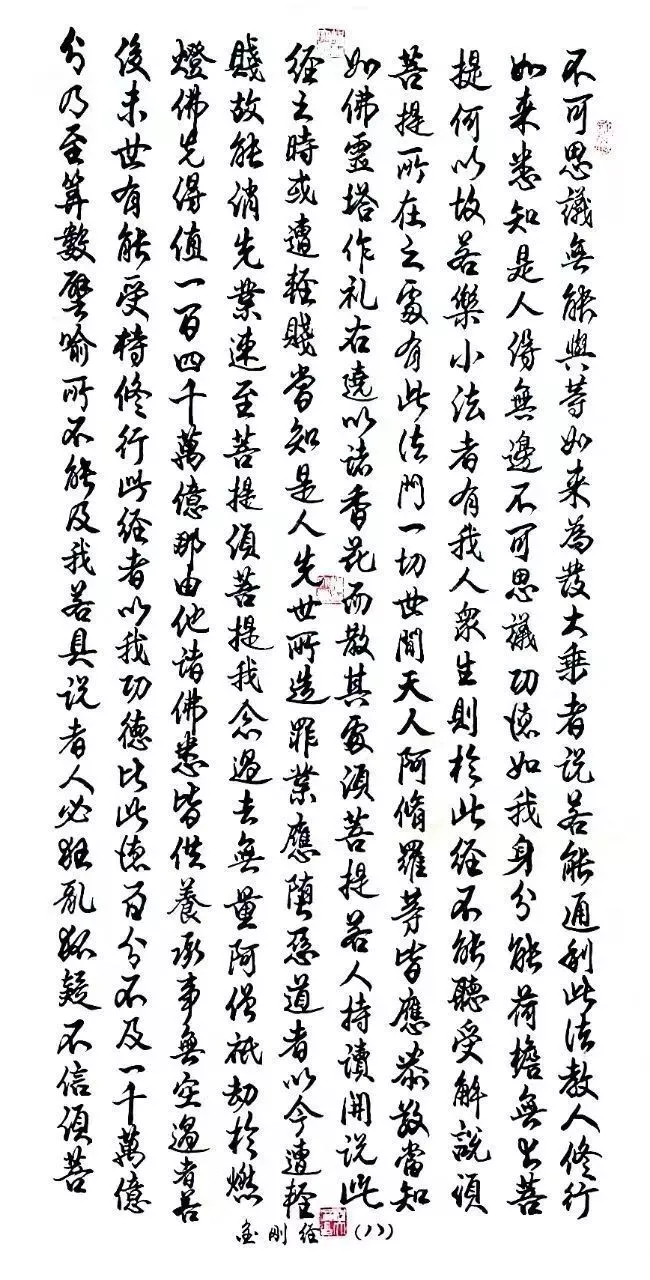 不可思議無能與等如来為發大乘者说若能通利此法教人修行
如来悉知是人得無邊不可思議功德如我身分能荷擔無上菩
提何以故若樂小法者有我人眾生則於此经不能聽受解說須
菩提所在之處有此法門一切世間天人阿脩羅等皆應恭敬當知
如佛靈塔作礼右遶以诸香花而散其處須菩提若人持讀開说此
经之時或遭輕賤當知是人先世所造罪業應墮惡道者以今遭輕
賤故能消先業速至菩提須菩提我念過去無量阿僧祇劫於燃
燈佛先得值一百四千萬億那由他諸佛悉皆供養承事無空過者若
後末世有能受持修行此经者以我功德比此德百分不及一千萬億
分乃至算數譬喻所不能及我若具说者人必狂亂狐疑不信須菩
金刚经(八)